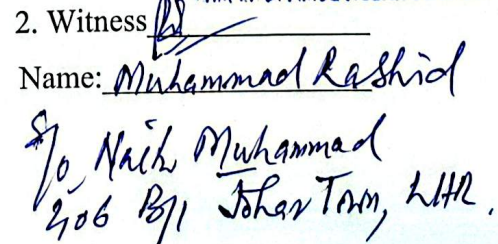 2. Witness
Name: Muhammad Rashid
S/o Naik Muhammad
206 B/1 Johar Town, LHR.